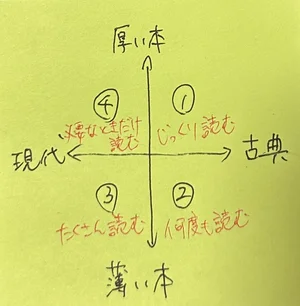 厚い本
④
①
必要なときだけ
読む
じっくり読む
現代
古典
③
②
たくさん読む
何度も読む
薄い本